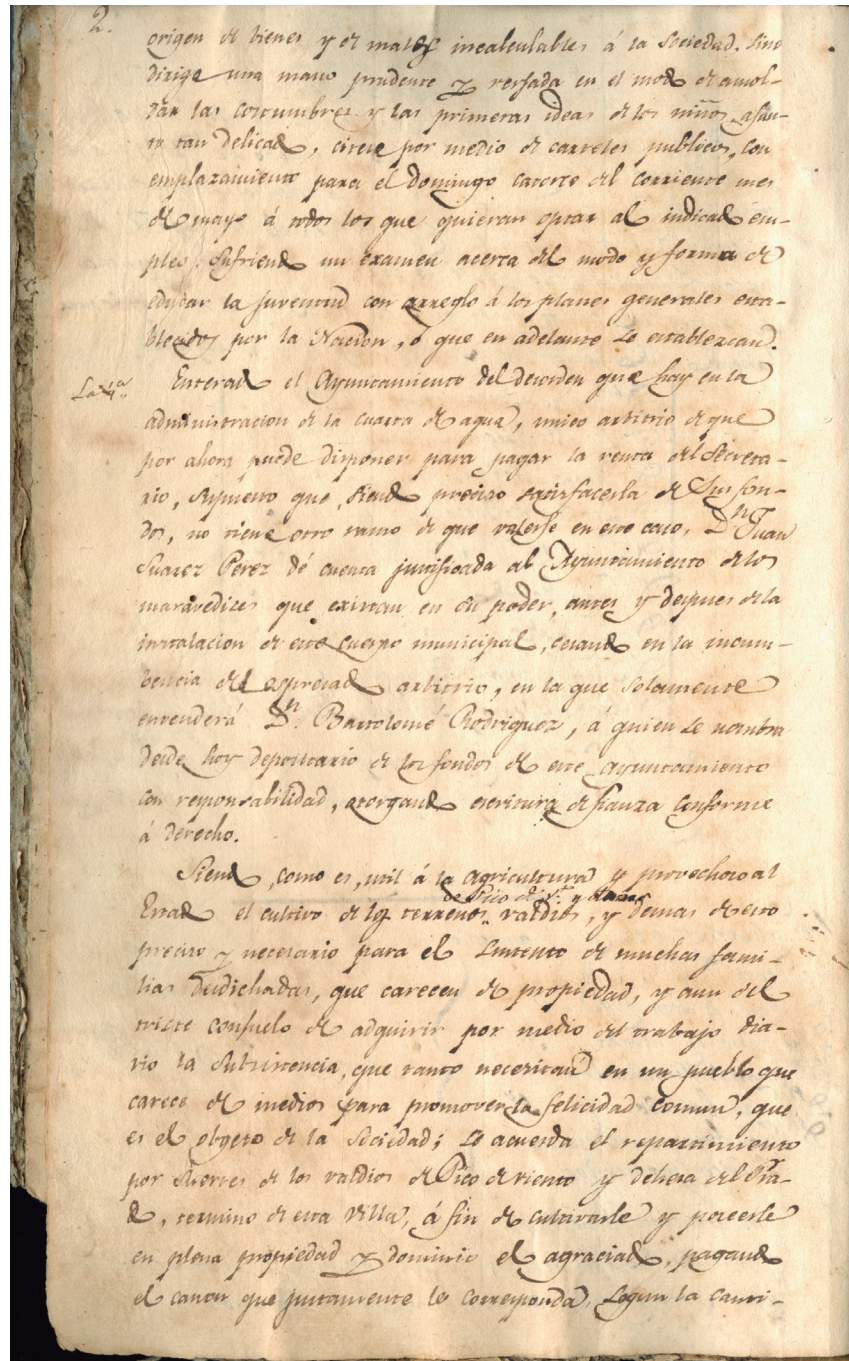 2.
origen de bienes y de males incalculables á la Sociedad. Sino
dirige una mano prudente y versada en el modo de amol-
dar las costumbres y las primeras ideas de los niños, asun-
to tan delicado, citese por medio de carteles publicos, con
emplazamiento para el Domingo catorce del corriente mes
de mayo á todos los que quieran optar al indicado em-
pleo, sufriendo un examen acerca del modo y forma de
educar la juventud con arreglo á los planes generales esta-
blecidos por la Nacion, o que en adelante se establezcan.
Enterado el Ayuntamiento del desorden que hay en la
administracion de la cuarta de agua, unico arbitrio de que
por ahora puede disponer para pagar la renta del Secreta-
rio, supuesto que, siendo preciso satisfacerla de sus fon-
dos, no tiene otro ramo de que valerse en este caso, Dn. Juan
Suarez Perez dé cuenta justificada al Ayuntamiento de los
maravedices que existan en su poder, antes y despues de la
instalacion de este cuerpo municipal, cesando en la incum-
bencia del espresado arbitrio, en la que solamente
entenderá Dn. Bartolomé Rodriguez, á quien se nombra
desde hoy depositario de los fondos de este ayuntamiento
con responsabilidad, otorgando escritura de fianza conforme
á derecho.
Siendo, como es, util á la agricultura y provechoso al
de Pico de vto. y
Estado el cultivo de los terrenos valdios, y demas de esto
preciso y necesario para el sustento de muchas fami-
lias desdichadas, que carecen de propiedad, y aun del
triste consuelo de adquirir por medio del trabajo dia-
rio la subsistencia, que tanto necesitan en un pueblo que
carece de medios para promover la felicidad comun, que
es el obgeto de la Sociedad; se acuerda el repartimiento
por suertes de los valdios de Pico de viento y dehesa del Pra-
do, termino de esta Villa, á fin de cultivarle y poseerle
en plena propiedad y dominio el agraciado, pagando
el canon que justamente le corresponda, segun la canti-